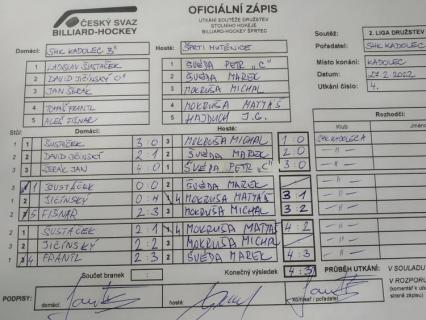 ČESKÝ SVAZ
BILLIARD-HOCKEY
OFICIÁLNÍ ZÁPIS
UTKÁNÍ SOUTĚŽE DRUŽSTEV
STOLNÍHO HOKEJE
BILLIARD-HOCKEY ŠPRTEC
Soutěž: 2. LIGA DRUŽSTEV
Pořadatel: SHK KADOLEC
Místo konání: KADOLEC
Datum: 2022
Utkání číslo: 4.
Domácí: SHK KADOLEC 3
Hosté: ŠPRTI MUTĚNICE
1 LADISLAV ŠUSTÁČEK
2 DAVID JIČÍNSKÝ
3 JAN ŠERÁK
4 TOMÁŠ FRANTL
5 ALEŠ FIŠNAR
1 ŠVEDA PETR "C"
2 ŠVEDA MAREK
3 MOKRUŠA MICHAL
4 MOKRUŠA MATYÁŠ
5 HAJDUCH J.G.
Stůl: Domácí: Hosté: Rozhodčí:
Klub Jméno
1 1 ŠUSTÁČEK 3:0 3 MOKRUŠA MICHAL 1:0 SHK KADOLEC
2 2 DAVID JIČÍNSKÝ 2:1 2 ŠVEDA MAREK 2:0 -"-
3 3 ŠERÁK JAN 4:0 1 ŠVEDA PETR "C" 3:0 -"-
1 ŠUSTÁČEK 0:0 2 ŠVEDA MAREK -"-
2 JIČÍNSKÝ 0:4 4 MOKRUŠA MATYÁŠ 3:1 -"-
5 FIŠNAR 2:3 3 MOKRUŠA MICHAL 3:2 -"-
1 ŠUSTÁČEK 2:1 4 MOKRUŠA MATYÁŠ 4:2 -"-
2 JIČÍNSKÝ 2:2 3 MOKRUŠA MICHAL -"-
4 FRANTL 2:3 2 ŠVEDA MAREK 4:3 -"-
Součet branek : Konečný výsledek 4:3 PRŮBĚH UTKÁNÍ: V SOULADU
V ROZPORU
PODPISY: domácí: hosté: rozhodčí / pořadatel: